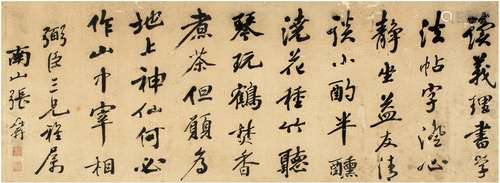 讀義理書學
法帖字澄心
静坐益友清
談小酌半醺
澆花種竹聽
琴玩鶴焚香
煮茶但願為
地上神仙何必
作山中宰相
弼臣三兄雅屬
南山張